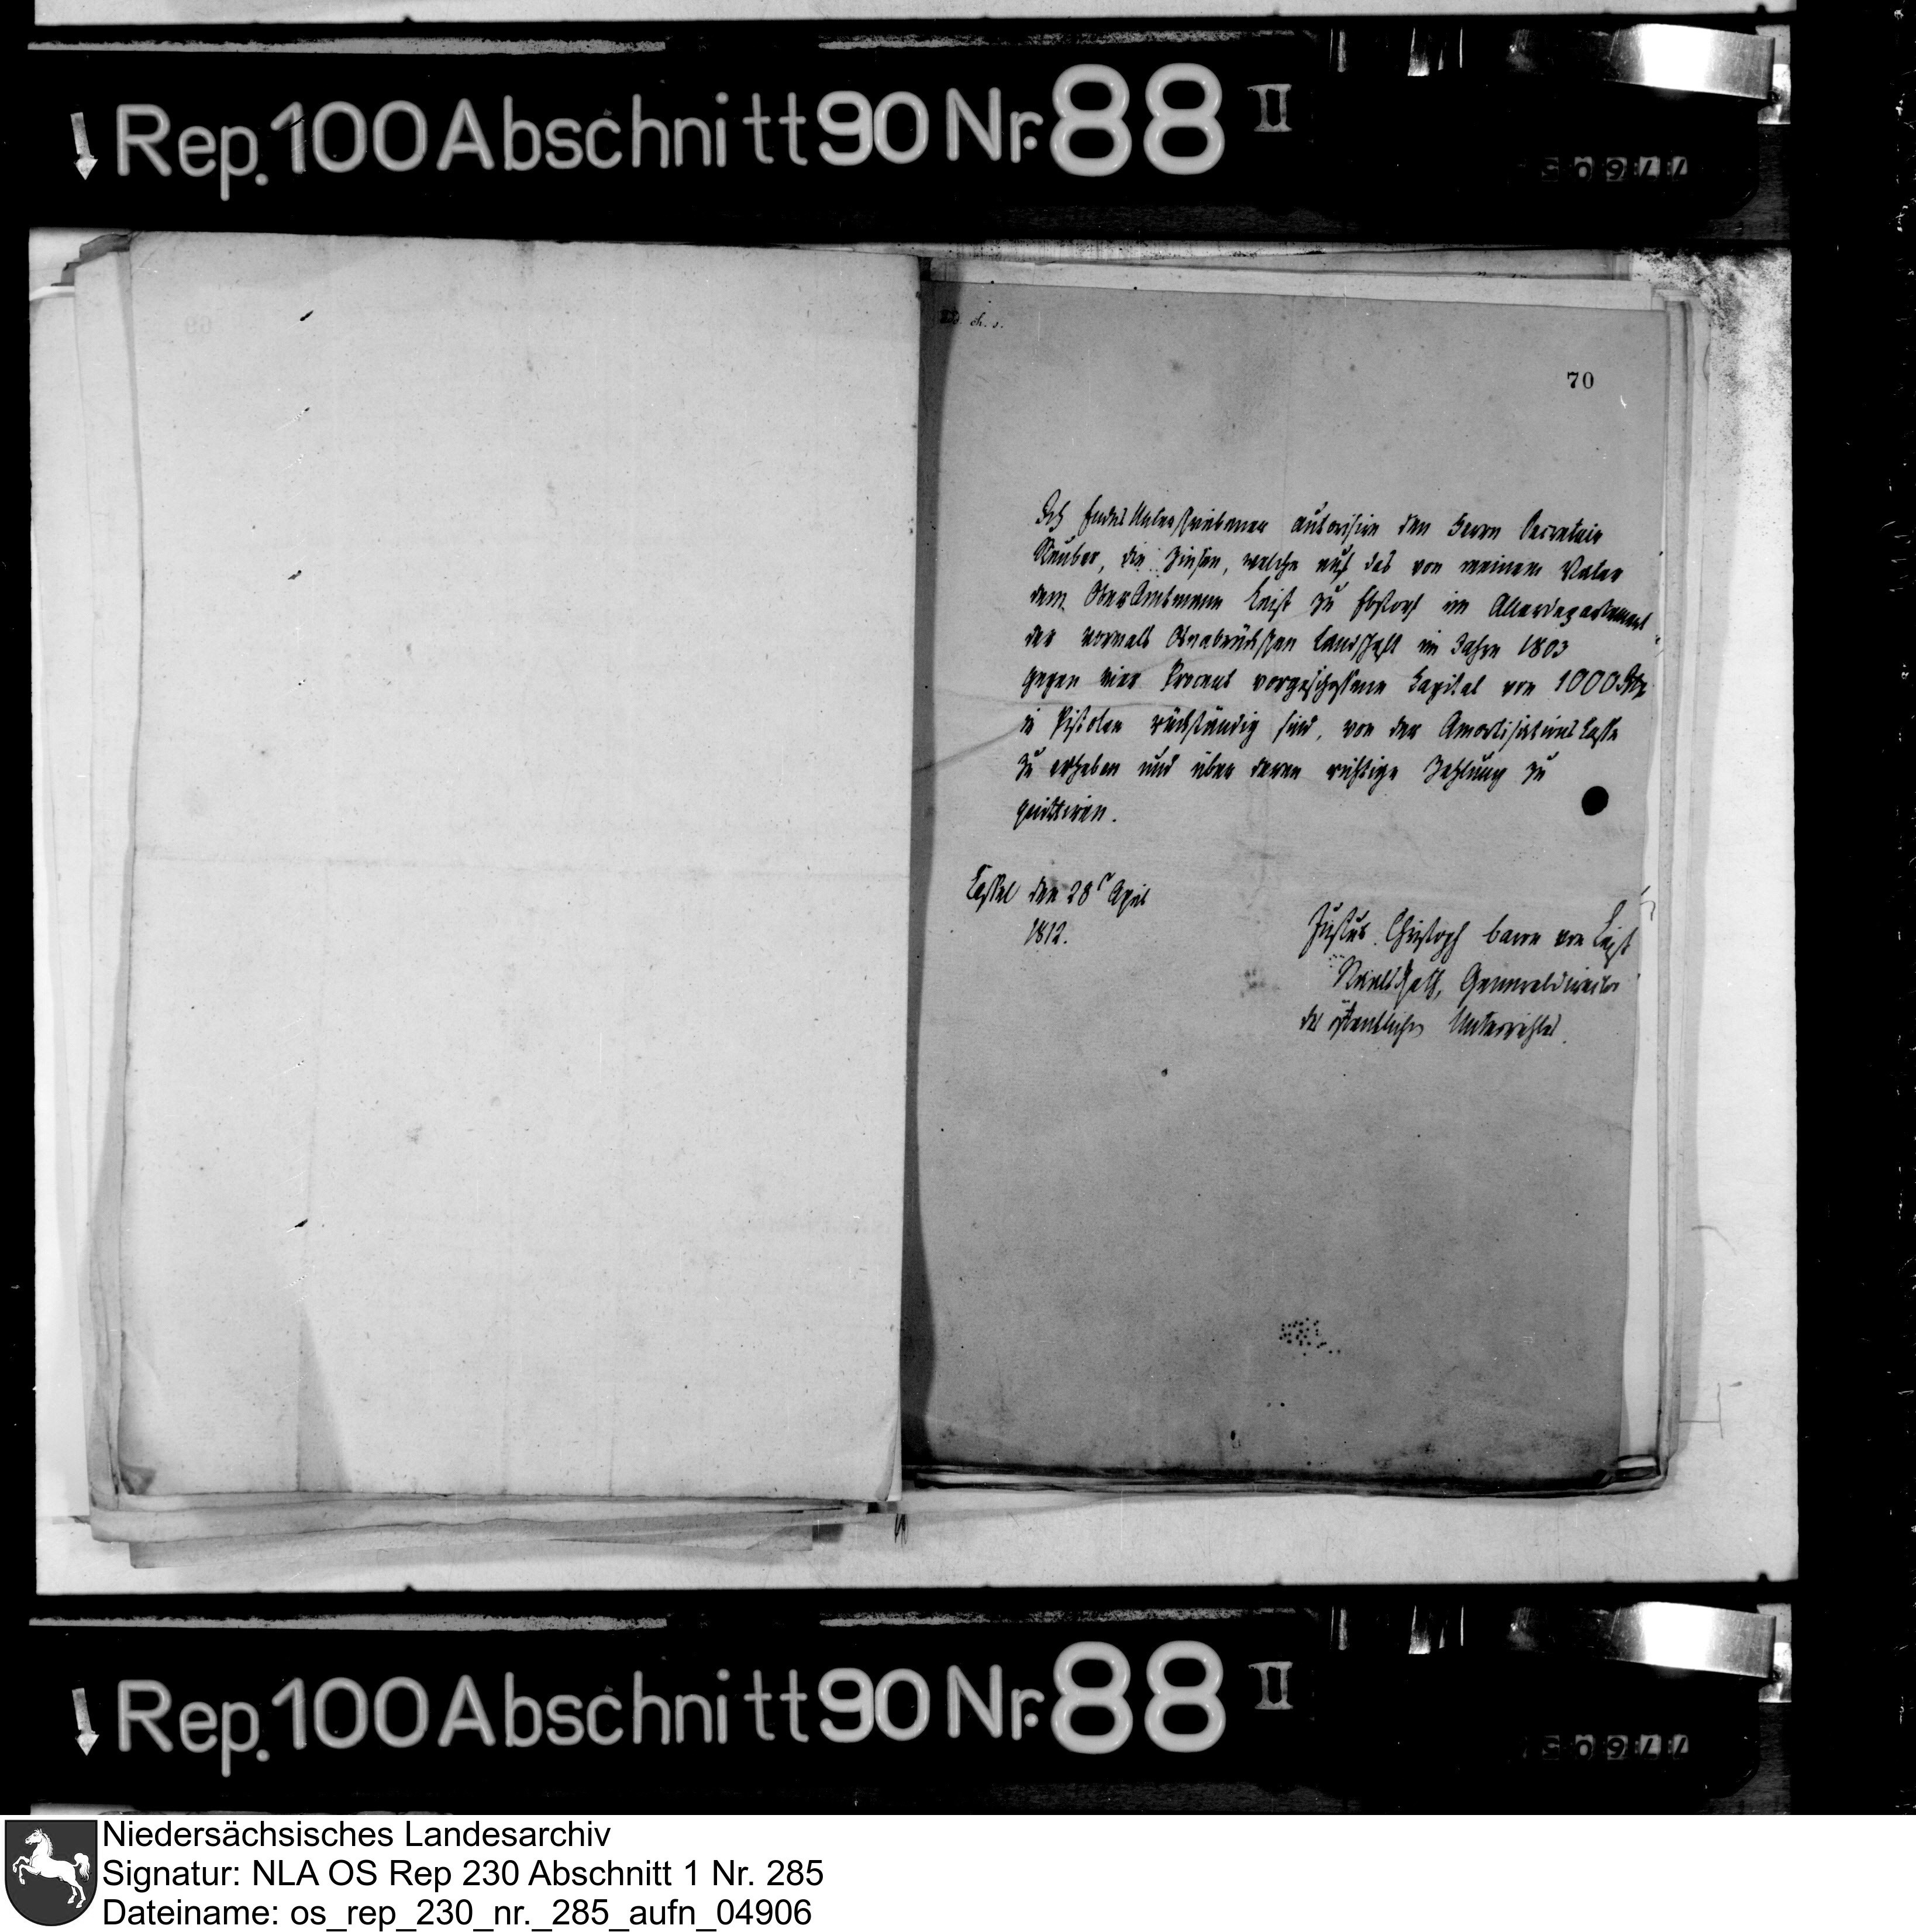 Rep. 100 Abschnitt 90 Nr. 88 II
77605
70
Ich Endes Unterschriebener autorisire den Herrn Secretair
Struber, die Zinsen, welche auf das von meinem Vater
dem Ober Amtmann Leist zu Ebstorf im
der vormals Osnabrückschen Landschaft im Jahre 1803
gegen vier Procent vorgeschossene Capital von 1000 Rthr
in Pistolen rückständig sind, von der Amortisations Casse
zu erheben und über deren richtige Zahlung zu
quittiren.
Cassel den 28 April
1812.
Justus Christoph baron von Leist
Staats Rath, Generaldirector
des öffentlichen Unterrichtes.
Rep. 100 Abschnitt 90 Nr. 88 II
77605
Niedersächsisches Landesarchiv
Signatur: NLA OS Rep 230 Abschnitt 1 Nr. 285
Dateiname: os_rep_230_nr._285_aufn_04906